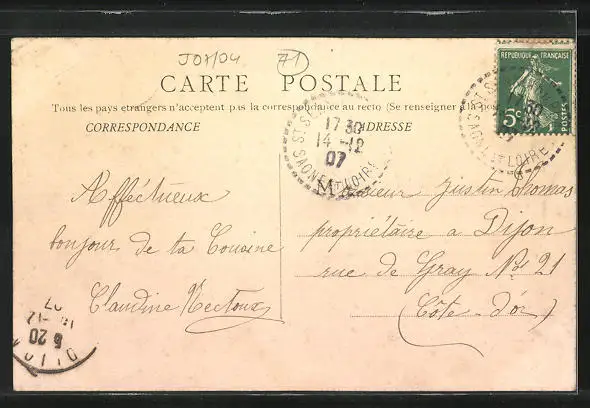 J07/04 71
CARTE POSTALE
Tous les pays etrangers n'acceptent pas la correspondance au recto (Se renseigner
CORRESPONDANCE
ADRESSE
REPUBLIQUE FRANÇAISE
5c
POSTES
17 30
14 -12
07
SAONE ET LOIRE
SAONE ET LOIRE
Afféctueux
bonjour de ta Cousine
Claudine Nectoux
Monsieur Justin Thomas
propriétaire a Dijon
rue de Gray No 21
(Côte d'Or)
6 20
DIJON